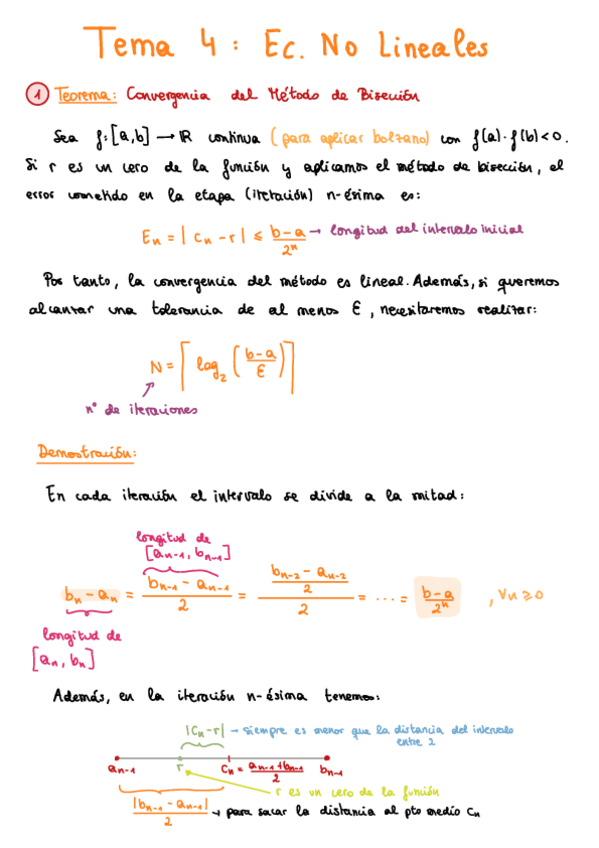 Tema 4: Ec. No Lineales
1 Teorema: Convergencia del Método de Bisección
Sea f: [a,b] → ℝ continua (para aplicar bolzano) con f(a)·f(b)<0.
Si r es un cero de la función y aplicamos el método de bisección, el
error cometido en la etapa (iteración) n-ésima es:
Eₙ = |cₙ - r| ≤ (b-a)/2ⁿ → longitud del intervalo inicial
Por tanto, la convergencia del método es lineal. Además, si queremos
alcanzar una tolerancia de al menos ε, necesitaremos realizar:
N = ⌈log₂((b-a)/ε)⌉
nº de iteraciones
Demostración:
En cada iteración el intervalo se divide a la mitad:
longitud de
[aₙ₋₁, bₙ₋₁]
bₙ - aₙ = (bₙ₋₁ - aₙ₋₁)/2 = ((bₙ₋₂ - aₙ₋₂)/2)/2 = ... = (b-a)/2ⁿ , ∀n≥0
longitud de
[aₙ, bₙ]
Además, en la iteración n-ésima tenemos:
|cₙ-r| → siempre es menor que la distancia del intervalo
entre 2
aₙ₋₁ r cₙ = (aₙ₋₁+bₙ₋₁)/2 bₙ₋₁
r es un cero de la función
|bₙ₋₁ - aₙ₋₁|/2 → para sacar la distancia al pto medio cₙ